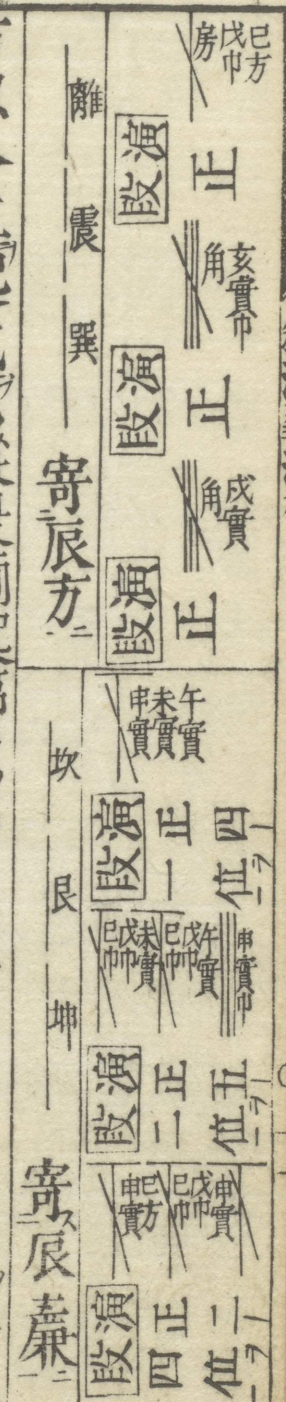 巳方
戊巾
房
正
演段
亥實巾
角
正
演段
戌實
角
正
演段
離 震 巽 寄辰方
午實
未實
申實
四位ヲ
正一
演段
申實巾
午實
戊巾
巳巾
未實
戊巾
巳巾
五位ヲ
正二
演段
申實
戊巾
巳巾
巳方
申實
二位ヲ
正四
演段
坎 艮 坤 寄ス辰廉ニ